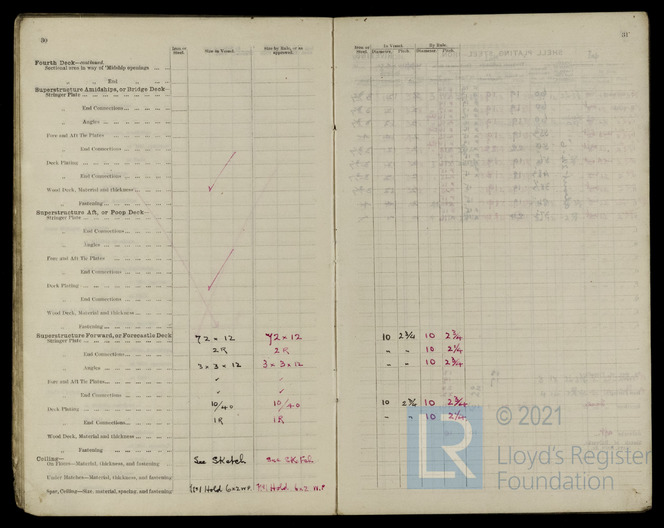 30
Iron or Steel.
Size in Vessel.
Size by Rule, or as approved.
Fourth Deck—continued.
Sectional area in way of 'Midship openings
„ End
Superstructure Amidships, or Bridge Deck—
Stringer Plate
„ End Connections
„ Angles
Fore and Aft Tie Plates
„ End Connections
Deck Plating
„ End Connections
Wood Deck, Material and thickness
„ Fastening
Superstructure Aft, or Poop Deck—
Stringer Plate
„ End Connections
„ Angles
Fore and Aft Tie Plates
„ End Connections
Deck Plating
„ End Connections
Wood Deck, Material and thickness
„ Fastening
Superstructure Forward, or Forecastle Deck
Stringer Plate 72 × 12 72 × 12
„ End Connections 2R 2R
„ Angles 3 × 3 × 12 3 × 3 × 12
Fore and Aft Tie Plates ✓ ✓
„ End Connections ✓ ✓
Deck Plating 10/40 10/40
„ End Connections 1R 1R
Wood Deck, Material and thickness
„ Fastening
Ceiling—
On Floors—Material, thickness, and fastening See Sketch See Sketch
Under Hatches—Material, thickness, and fastening
Spar, Ceiling—Size, material, spacing, and fastening Hold 6×2 W.P. Hold 6×2 W.P.
31
Iron or Steel.
In Vessel.
By Rule.
Diameter. Pitch. Diameter. Pitch.
10 2¾ 10 2¾
„ „ 10 2¼
„ „ 10 2¾
10 2¾ 10 2¾
„ „ 10 2¼
© 2021
LR
Lloyd's Register
Foundation